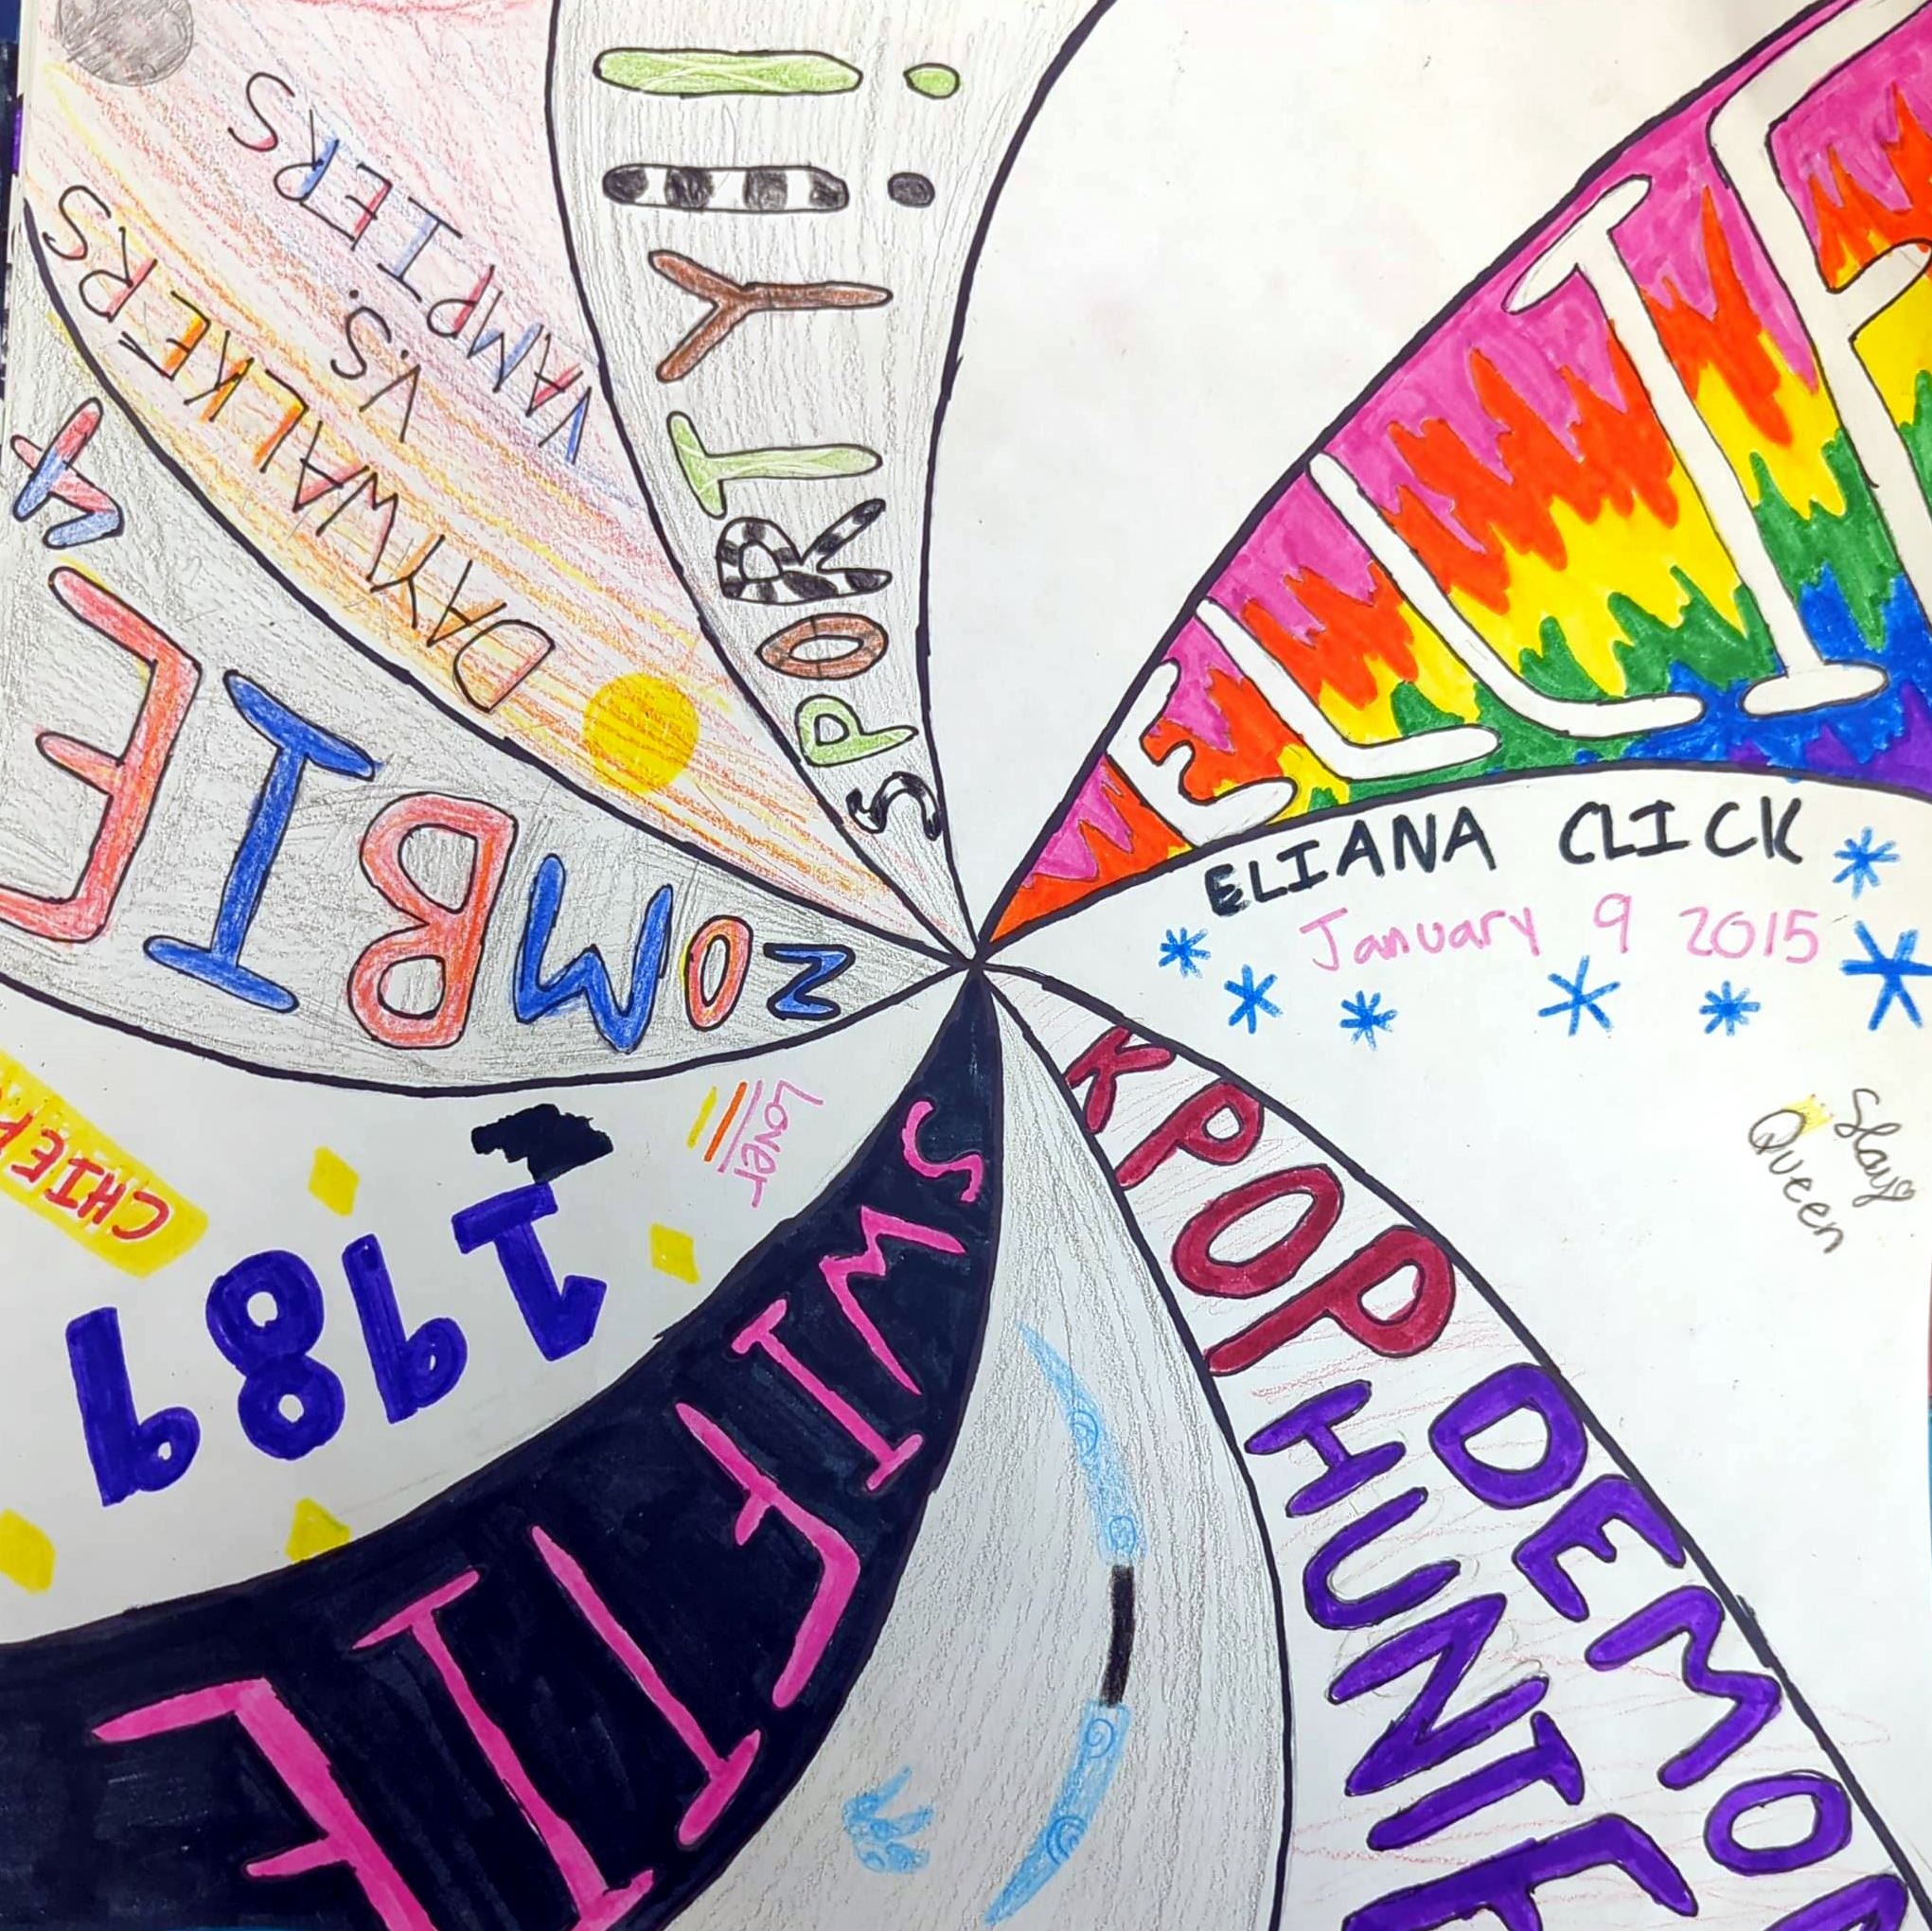 SPORTY!!
ELLIE
ELIANA CLICK
January 9 2015
Slay
Queen
KPOP
DEMON
HUNTE
SWIFTIE
Lover
1989
CHIEF
ZOMBIE
4
DAYWALKERS
V.S.
VAMPIERS